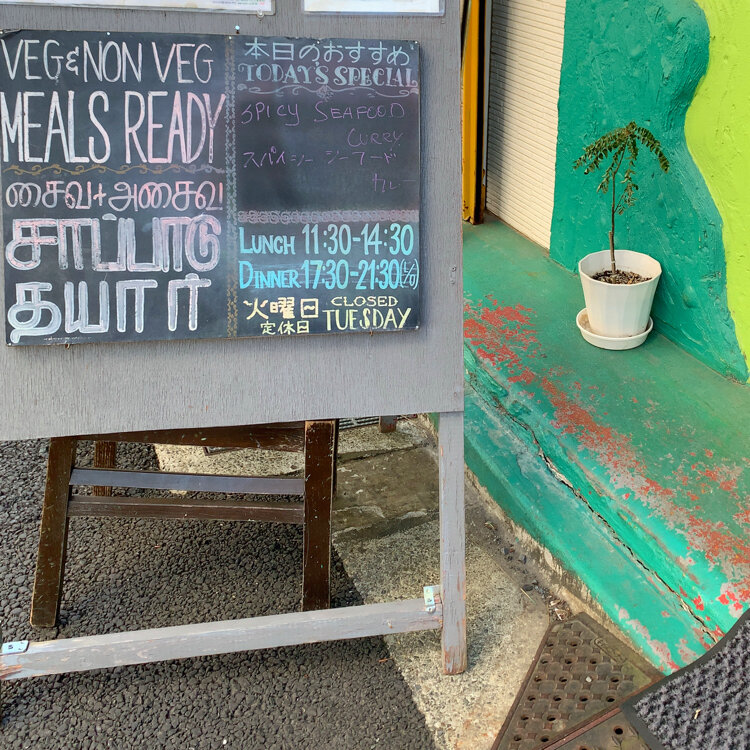 VEG & NON VEG
MEALS READY
சைவ+அசைவ
சாப்பாடு
தயார்
本日のおすすめ
TODAY'S SPECIAL
SPICY SEAFOOD
CURRY
スパイシー シーフード
カレー
LUNCH 11:30-14:30
DINNER 17:30-21:30(L/O)
火曜日 CLOSED
定休日 TUESDAY